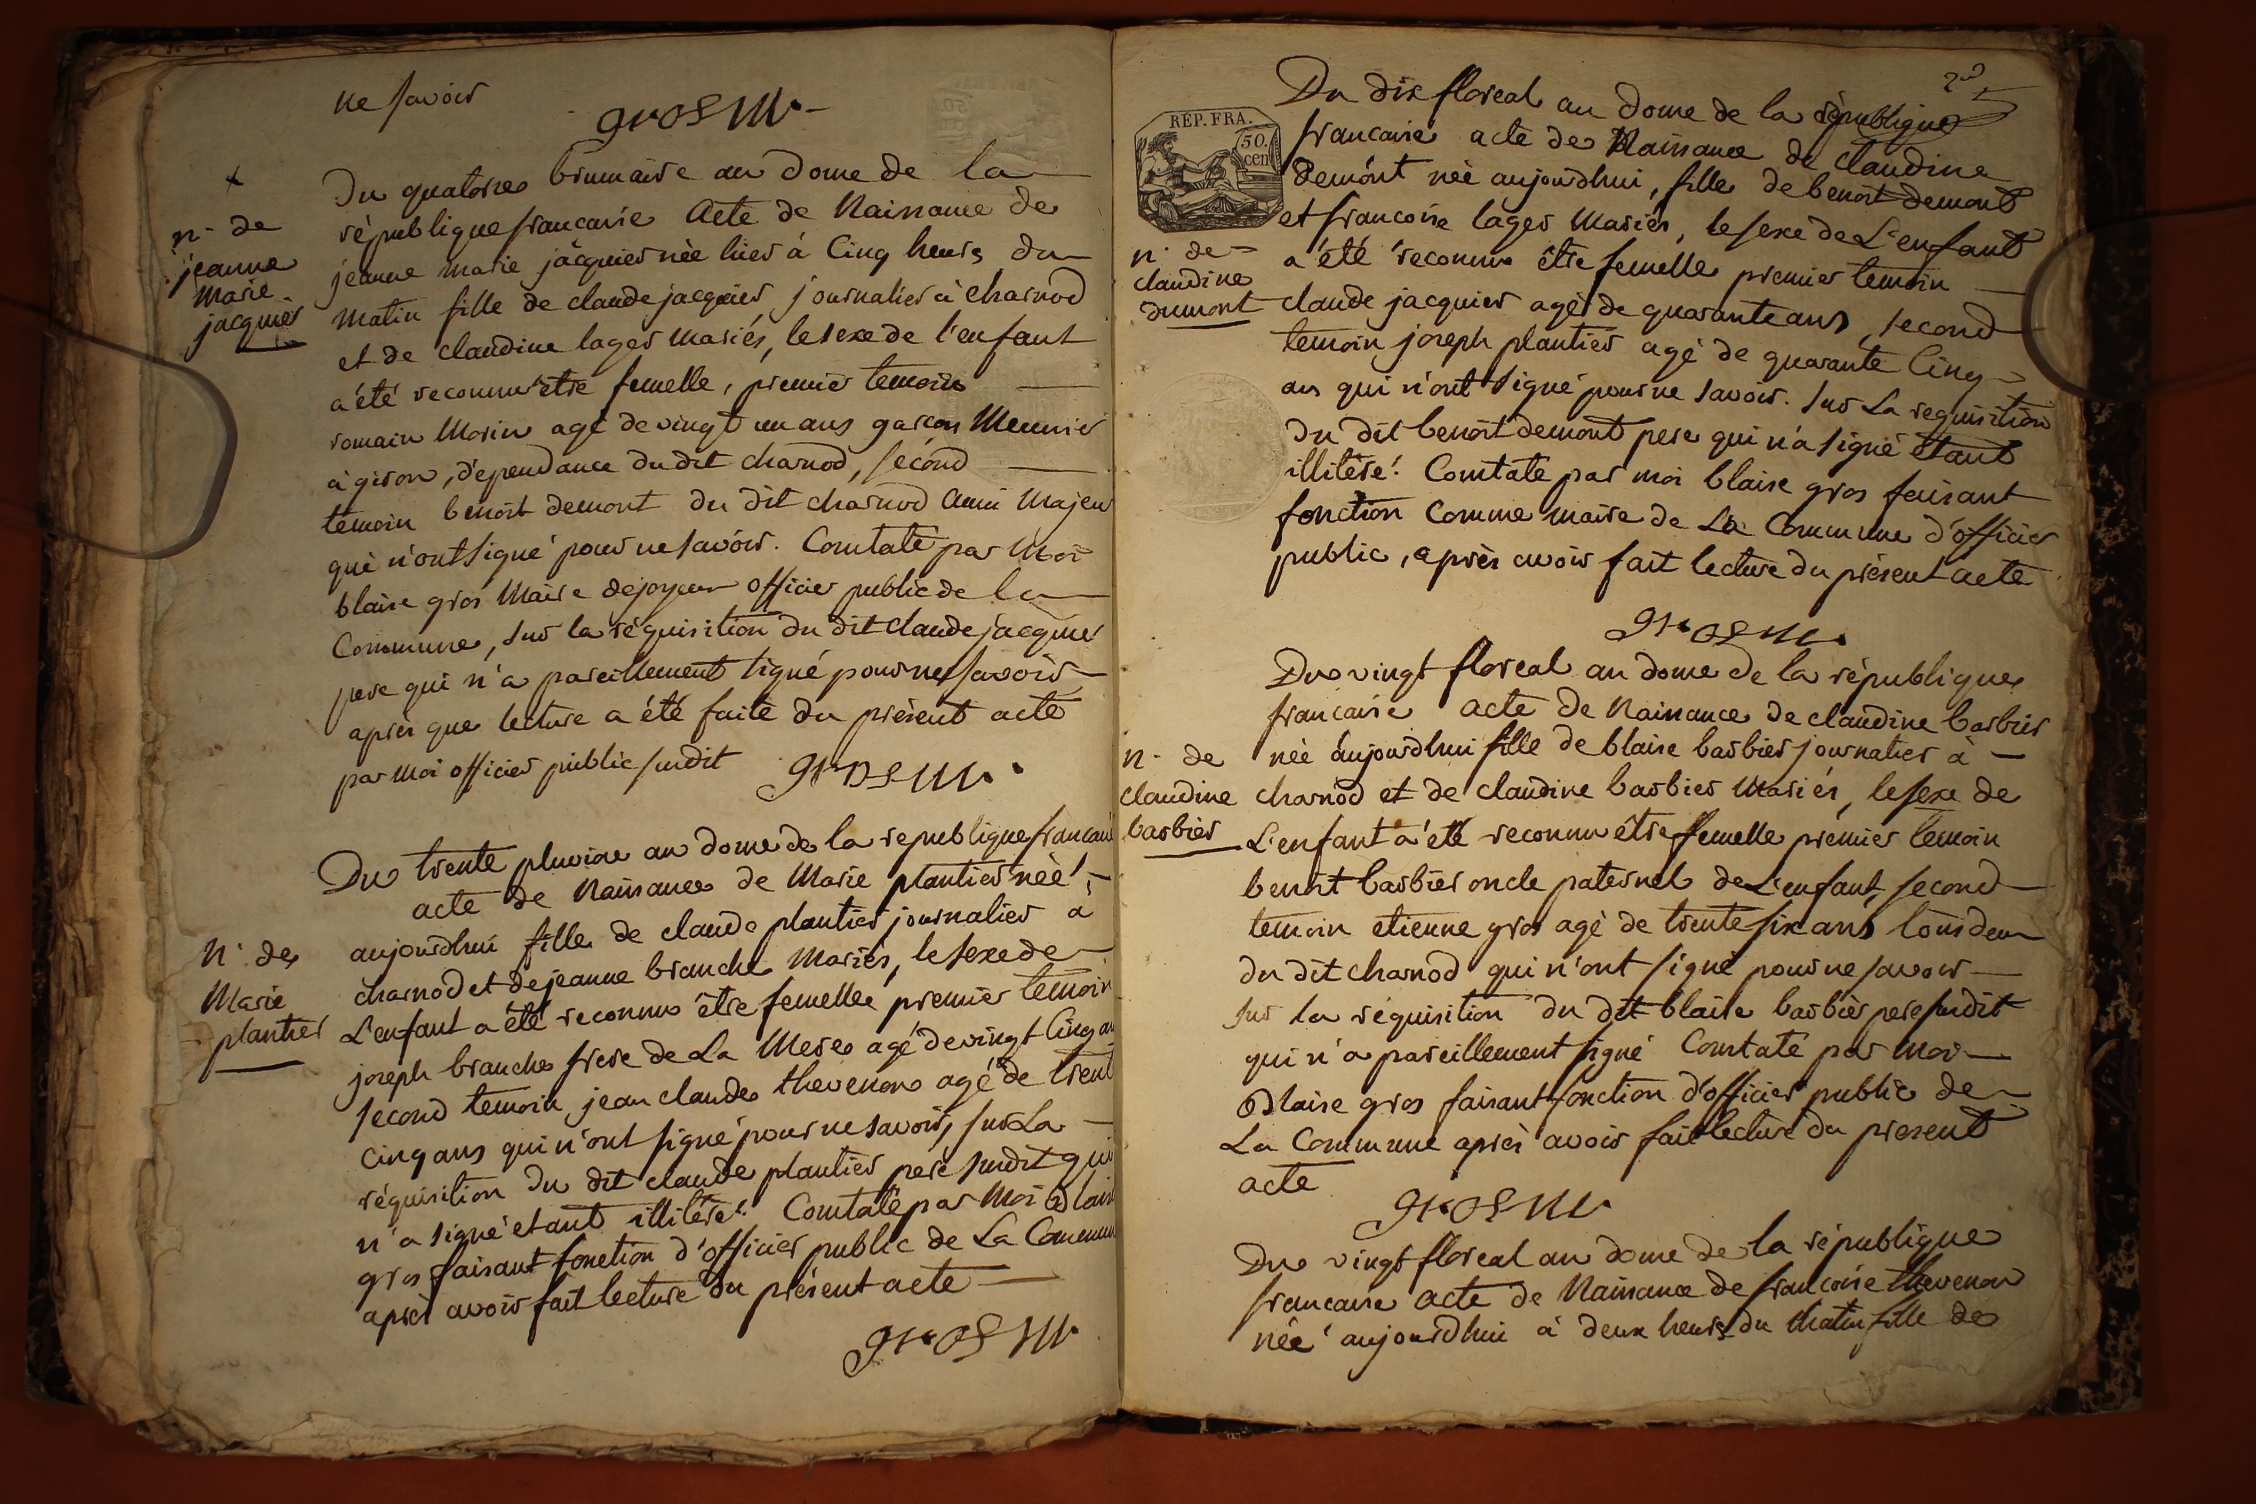 ne savoir
gros m.
+
n. de
jeanne
Marie
jacquier
Du quatorze brumaire an dome de la
république francaise Acte de Naissance de
jeanne marie jacquier née hier à Cinq heures du
matin fille de claude jacquier journalier à charnod
et de claudine lager mariés, le sexe de l'enfant
a été reconnu être femelle, premier temoin
romain Morin agé de vingt un ans garcon Meunier
à giron, dépendance du dit charnod, second
temoin benoit demont du dit charnod ami Majeur
qui n'ont signé pour ne savoir. Constaté par Moi
blaise gros Maire officier public de la
Commune, sur la réquisition du dit claude jacquier
pere qui n'a pareillement signé pour ne savoir
après que lecture a été faite du présent acte
par moi officier public susdit gros m.
N. de
Marie
plantier
Du trente pluviose an dome de la republique francaise
acte de Naissance de Marie plantier née
aujourdhui fille de claude plantier journalier à
charnod et de jeanne branche Mariés, le sexe de
L'enfant a été reconnu être femelle premier temoin
joseph branche frere de La Mere agé de vingt Cinq ans
second temoin jean claude thevenon agé de trent
cinq ans qui n'ont signé pour ne savoir, sur La
réquisition du dit claude plantier pere susdit qui
n'a signé etant illitéré. Constaté par Moi Blaise
gros faisant fonction d'officier public de La Commune
après avoir fait lecture du présent acte
gros m.
REP. FRA.
50.
cen
Du dix floreal an dome de la république
francaise acte de Naissance de claudine
demont née aujourdhui, fille de benoit demont
et francoise lager Mariés, le sexe de L'enfant
n. de
claudine
dumont
a été reconnu être femelle premier temoin
claude jacquier agé de quarante ans, second
temoin joseph plantier agé de quarante Cinq
ans qui n'ont signé pour ne savoir. sur La requisition
du dit benoit demont pere qui n'a signé étant
illitéré. Constaté par moi blaise gros faisant
fonction Comme maire de La Commune d'officier
public, après avoir fait lecture du présent acte
gros m.
Du vingt floreal an dome de la république
francaise acte de Naissance de claudine barbier
n. de
claudine
barbier
née aujourdhui fille de blaise barbier journalier à
charnod et de claudine barbier Mariés, le sexe de
L'enfant a été reconnu être femelle premier temoin
benoit barbier oncle paternel de L'enfant, second
temoin etienne gros agé de trente six ans tous deux
du dit charnod qui n'ont signé pour ne savoir
sur la réquisition du dit blaise barbier pere susdit
qui n'a pareillement signé Constaté par Moi
Blaise gros faisant fonction d'officier public de
La Commune après avoir fait lecture du present
acte
gros m.
Du vingt floreal an dome de la république
francaise acte de Naissance de francoise thevenon
née aujourdhui à deux heures du Matin fille de